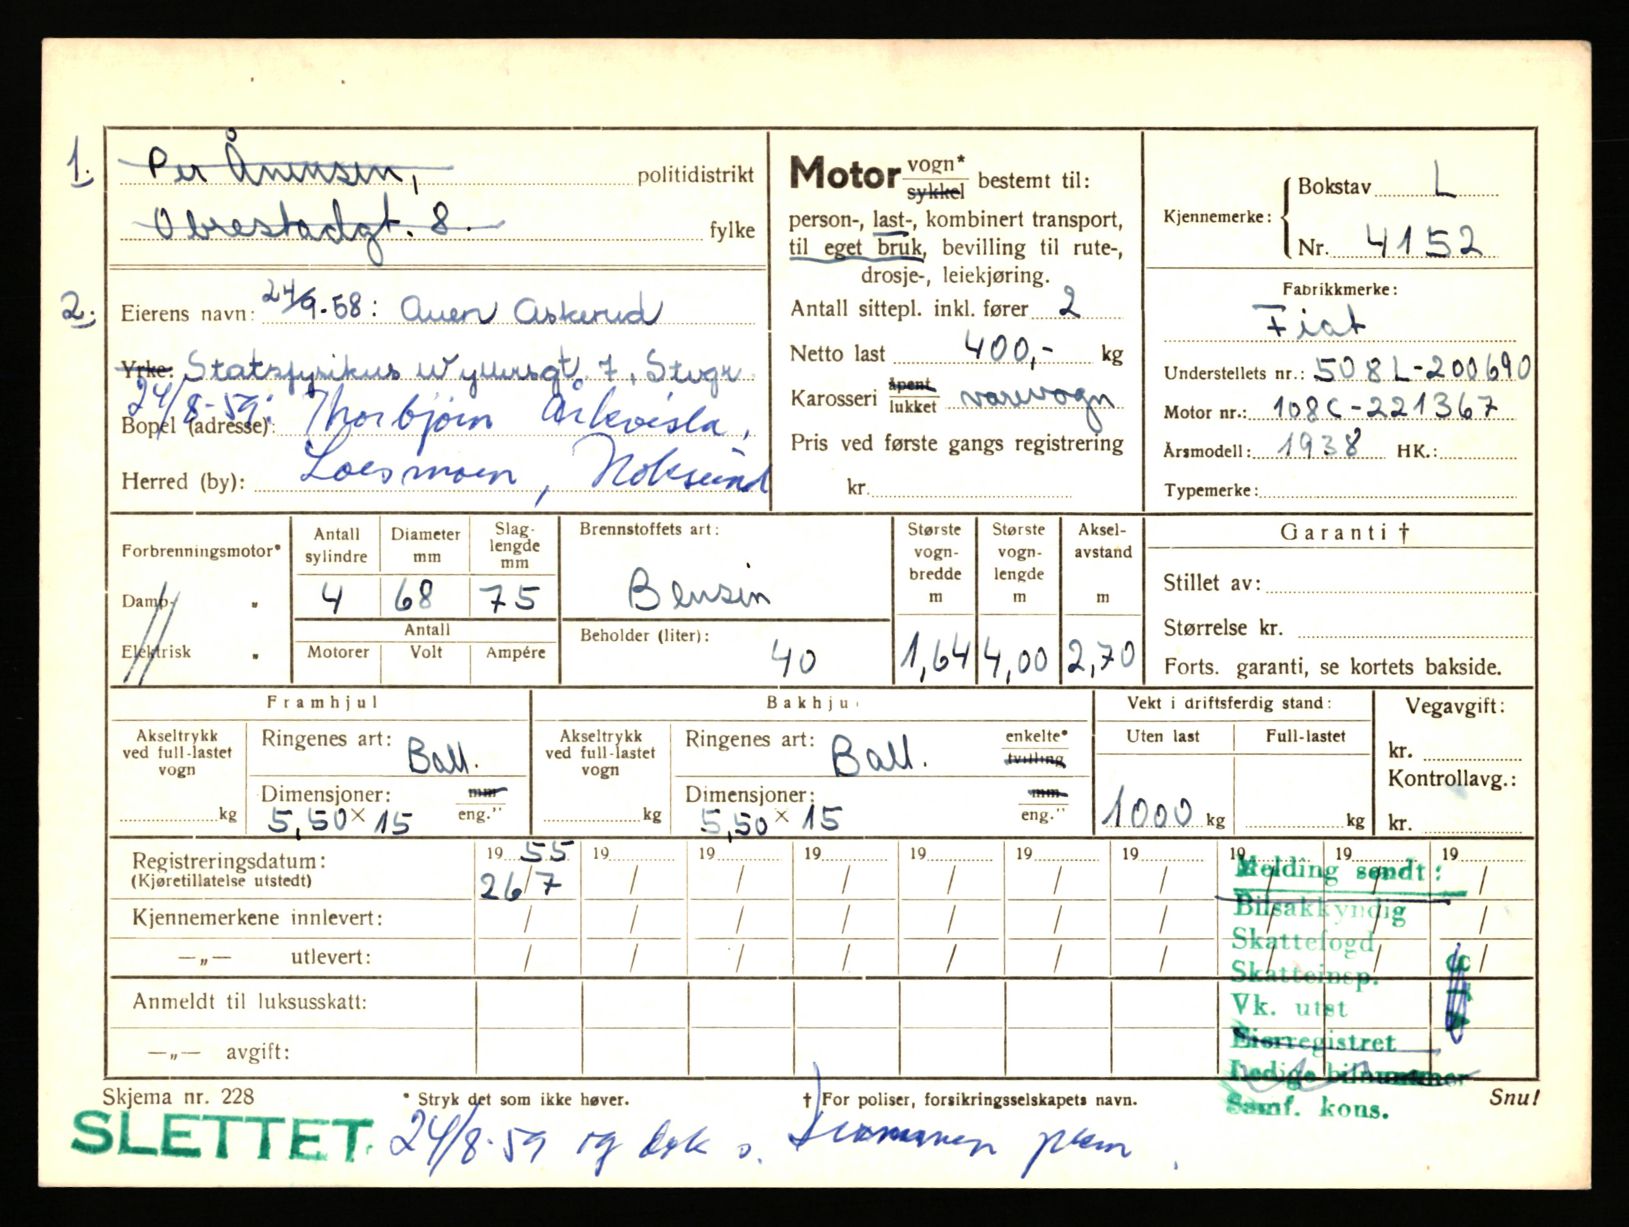 1. Per Ånensen, politidistrikt
Obrestadgt. 8. fylke
2. Eierens navn: 24/9-58: Auen Askerud
Yrke: Statsfysikus gt. 7, Stvgr.
24/8-59: Thorbjørn
Bopel (adresse):
Herred (by): Loesmoen, Hokksund
Motor vogn* sykkel bestemt til:
person-, last-, kombinert transport,
til eget bruk, bevilling til rute-,
drosje-, leiekjøring.
Antall sittepl. inkl. fører 2
Netto last 400,- kg
Karosseri åpent lukket varevogn
Pris ved første gangs registrering
kr.
Kjennemerke: Bokstav L
Nr. 4152
Fabrikkmerke:
Fiat
Understellets nr.: 508L-200690
Motor nr.: 108C-221367
Årsmodell: 1938 HK.:
Typemerke:
Forbrenningsmotor*
Damp- "
Elektrisk "
Antall sylindre Diameter mm Slaglengde mm
4 68 75
Antall
Motorer Volt Ampére
Brennstoffets art:
Bensin
Beholder (liter):
40
Største vognbredde m Største vognlengde m Akselavstand m
1,64 4,00 2,70
Garanti †
Stillet av:
Størrelse kr.
Forts. garanti, se kortets bakside.
Framhjul
Akseltrykk ved full-lastet vogn
kg
Ringenes art: Ball.
Dimensjoner: mm
5,50 x 15 eng."
Bakhjul
Akseltrykk ved full-lastet vogn
kg
Ringenes art: Ball. enkelte* tvilling
Dimensjoner: mm
5,50 x 15 eng."
Vekt i driftsferdig stand:
Uten last Full-lastet
1000 kg kg
Vegavgift:
kr.
Kontrollavg.:
kr.
Registreringsdatum: 19 55 19 19 19 19 19 19 19 19 19
(Kjøretillatelse utstedt) 26/7 / / / / / / / / /
Kjennemerkene innlevert: / / / / / / / / / /
—„— utlevert: / / / / / / / / / /
Anmeldt til luksusskatt:
—„— avgift:
Melding sendt:
Bilsakkyndig
Skattefogd
Skatteinsp.
Vk. utst
Eierregistret
Ledige bilnummer
Samf. kons.
Skjema nr. 228 * Stryk det som ikke høver. † For poliser, forsikringsselskapets navn. Snu!
SLETTET 24/8-59 og